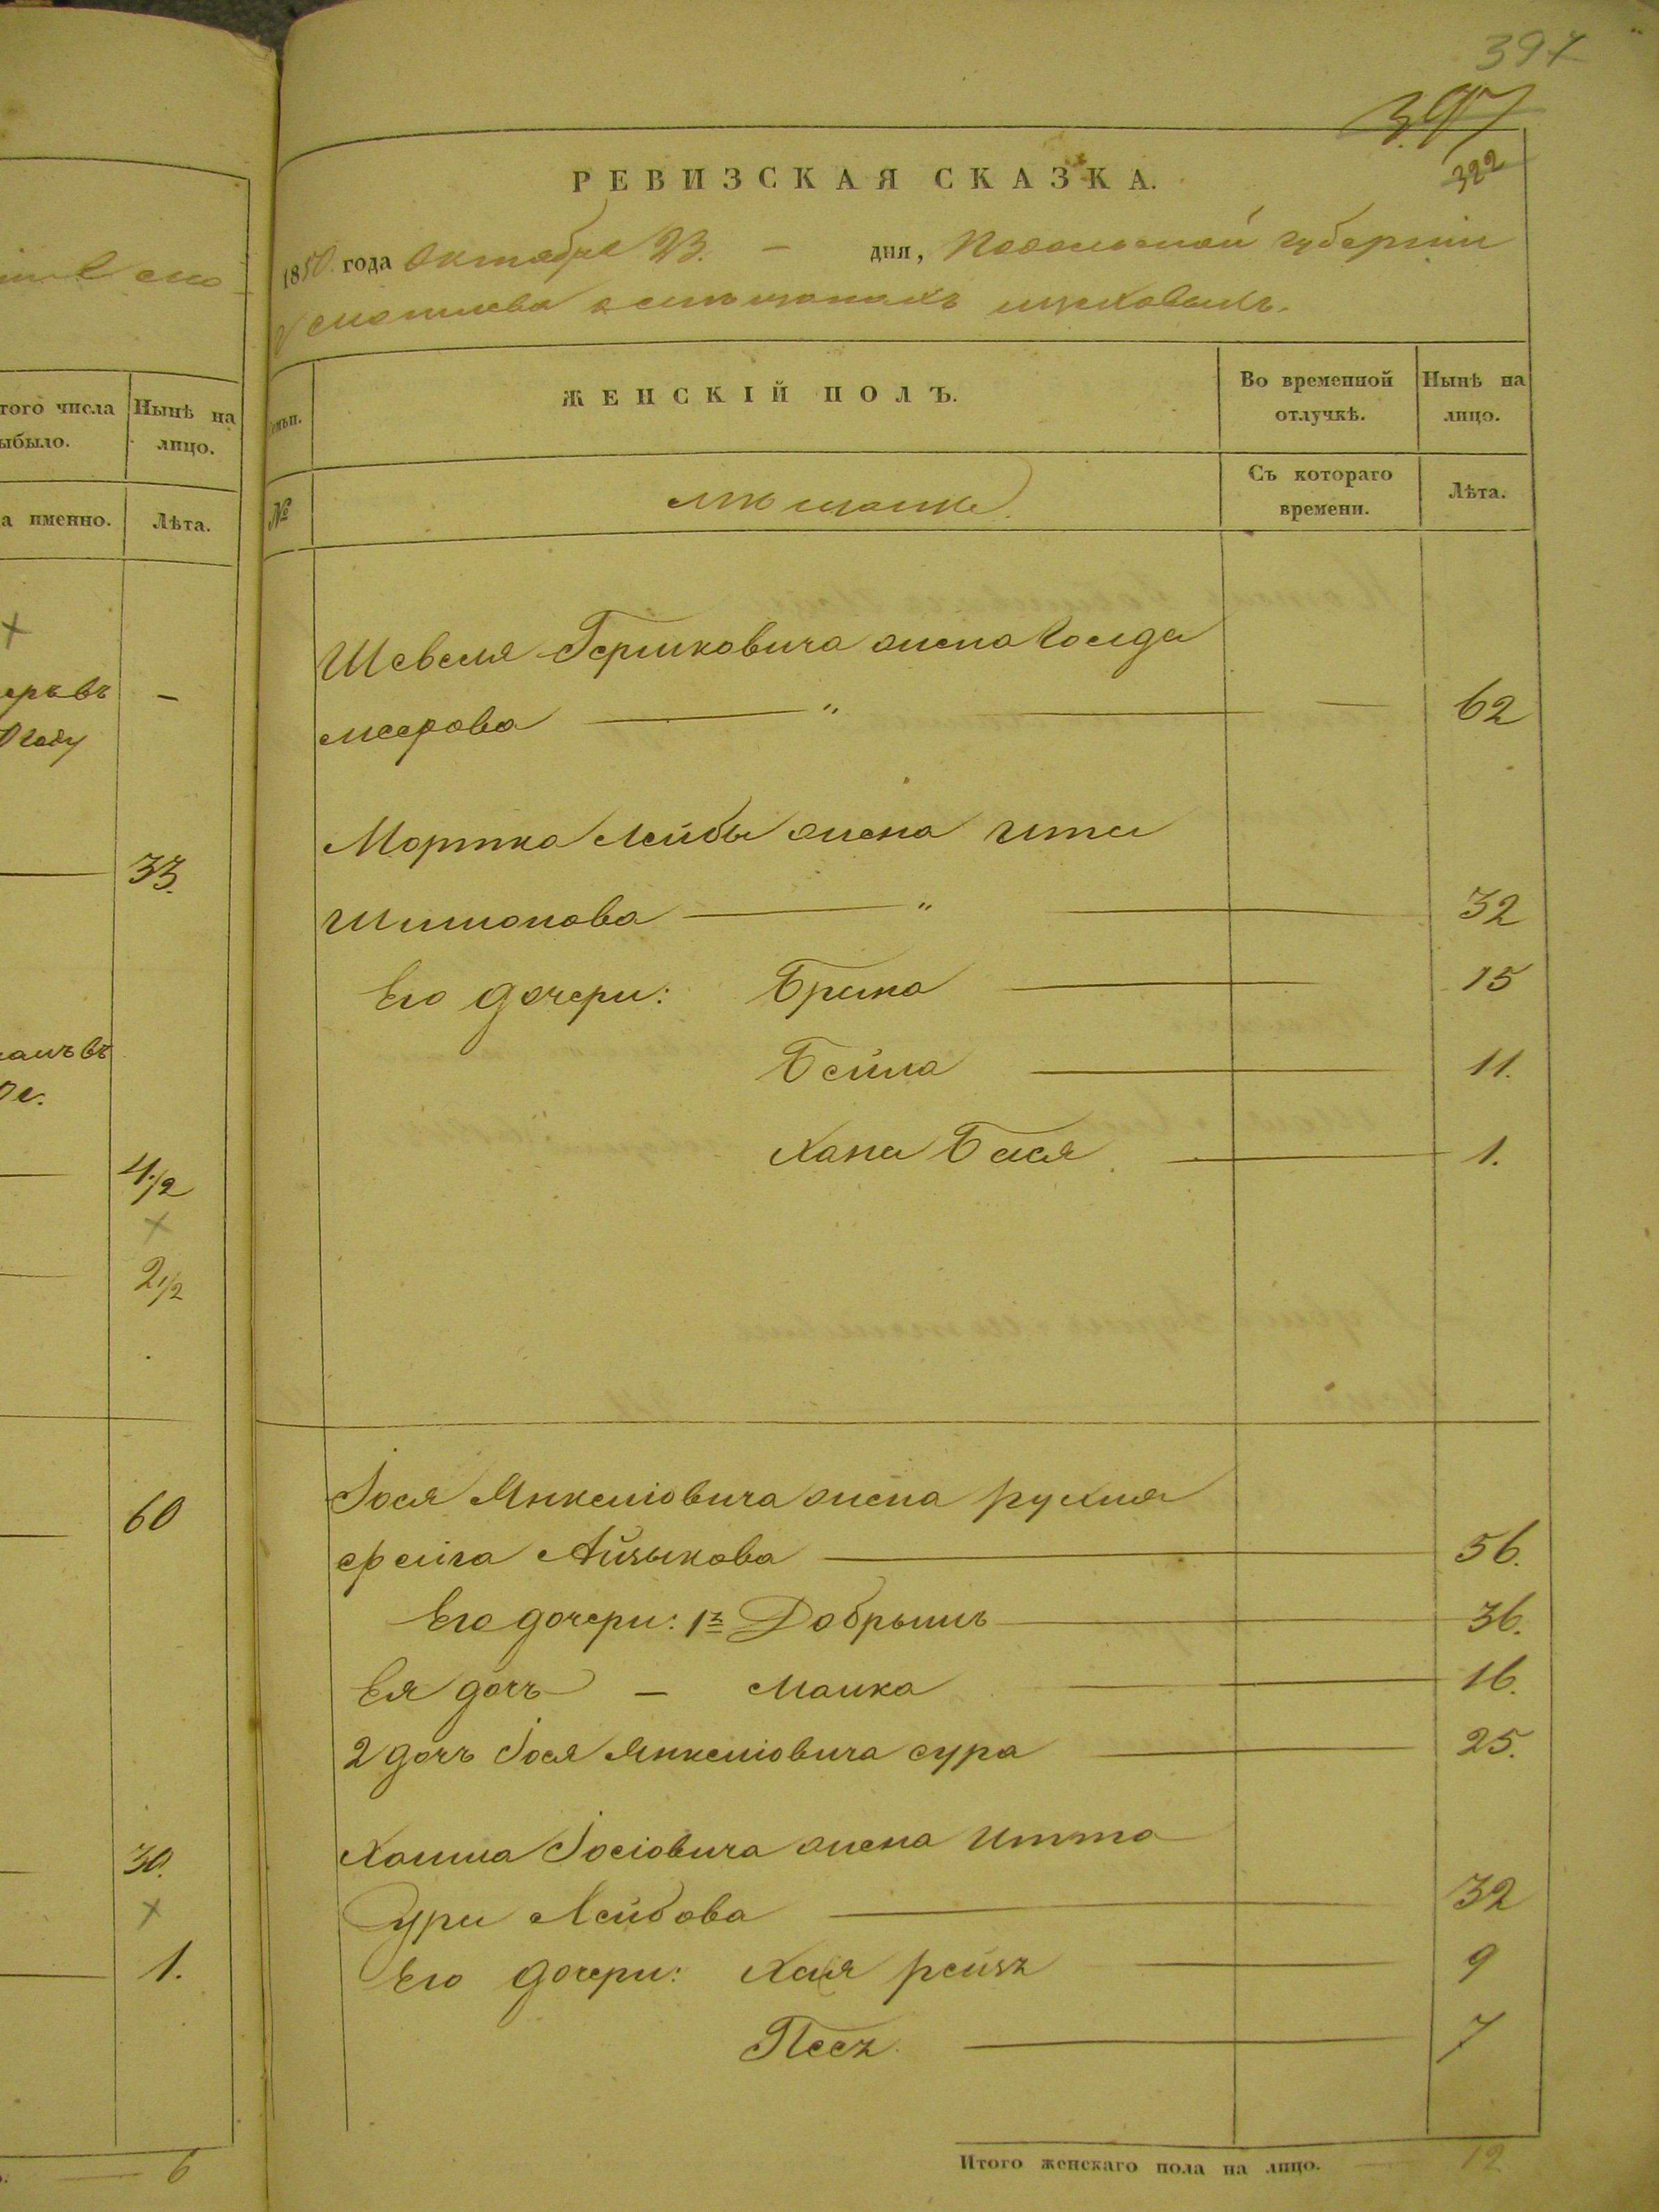 397
397
322
РЕВИЗСКАЯ СКАЗКА.
1850 года Октября 23. — дня, Подольской губернии
мѣщанки.
ЖЕНСКІЙ ПОЛЪ.
Во временной отлучкѣ.
Нынѣ на лицо.
№
Съ котораго времени.
Лѣта.
Шевеля Гершковича жена Голда
меерова — " — — 62
Мортка Лейбы жена Ита
Шимонова — " — 32
Его дочери: Брина — 15
Бейла — 11.
Хана Бася — 1.
Іося Янкеліовича жена рухля
фейга Айзыкова — 56.
Его дочери: 1я Добрышъ — 36.
Ея дочь — Малка — 16.
2 дочь Іося Янкеліовича сура — 25.
Хаима Іосіовича жена Итта
Сура Лейбова — 32
Его дочери: Хая рейзя — 9
Песя — 7
Итого женскаго пола на лицо. — 12
того числа
ыбыло.
Нынѣ на
лицо.
а именно.
Лѣта.
еръ въ —
году
33.
4 1/2
2 1/2
60
30.
1.
6